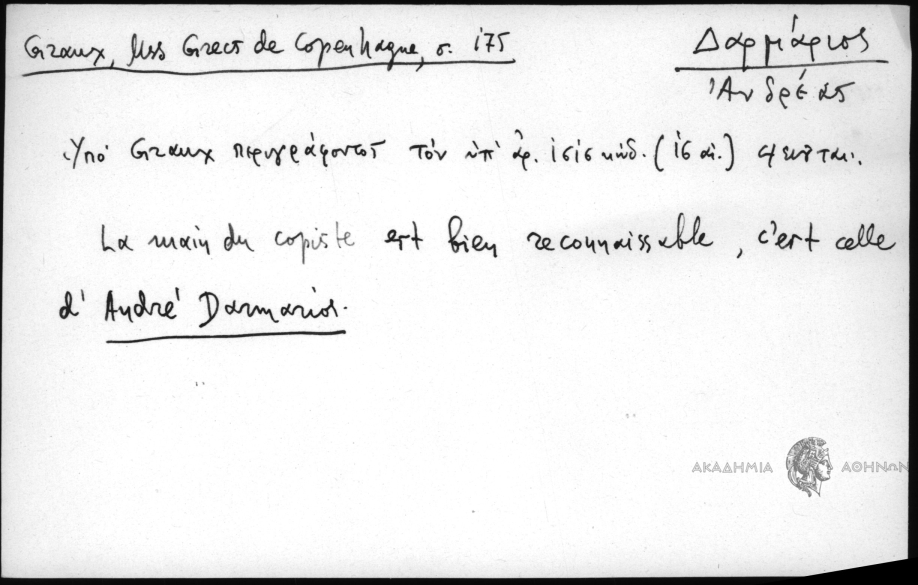 Graux, Mss Grecs de Copenhague, σ. 175
Δαρμάριος
Ἀνδρέας
Ὑπό Graux περιγράφοντος τόν ὑπ' ἀρ. κώδ. (ἰϚ αἰ.)
La main du copiste est bien reconnaissable, c'est celle
d' André Darmarios.
ΑΚΑΔΗΜΙΑ ΑΘΗΝΩΝ